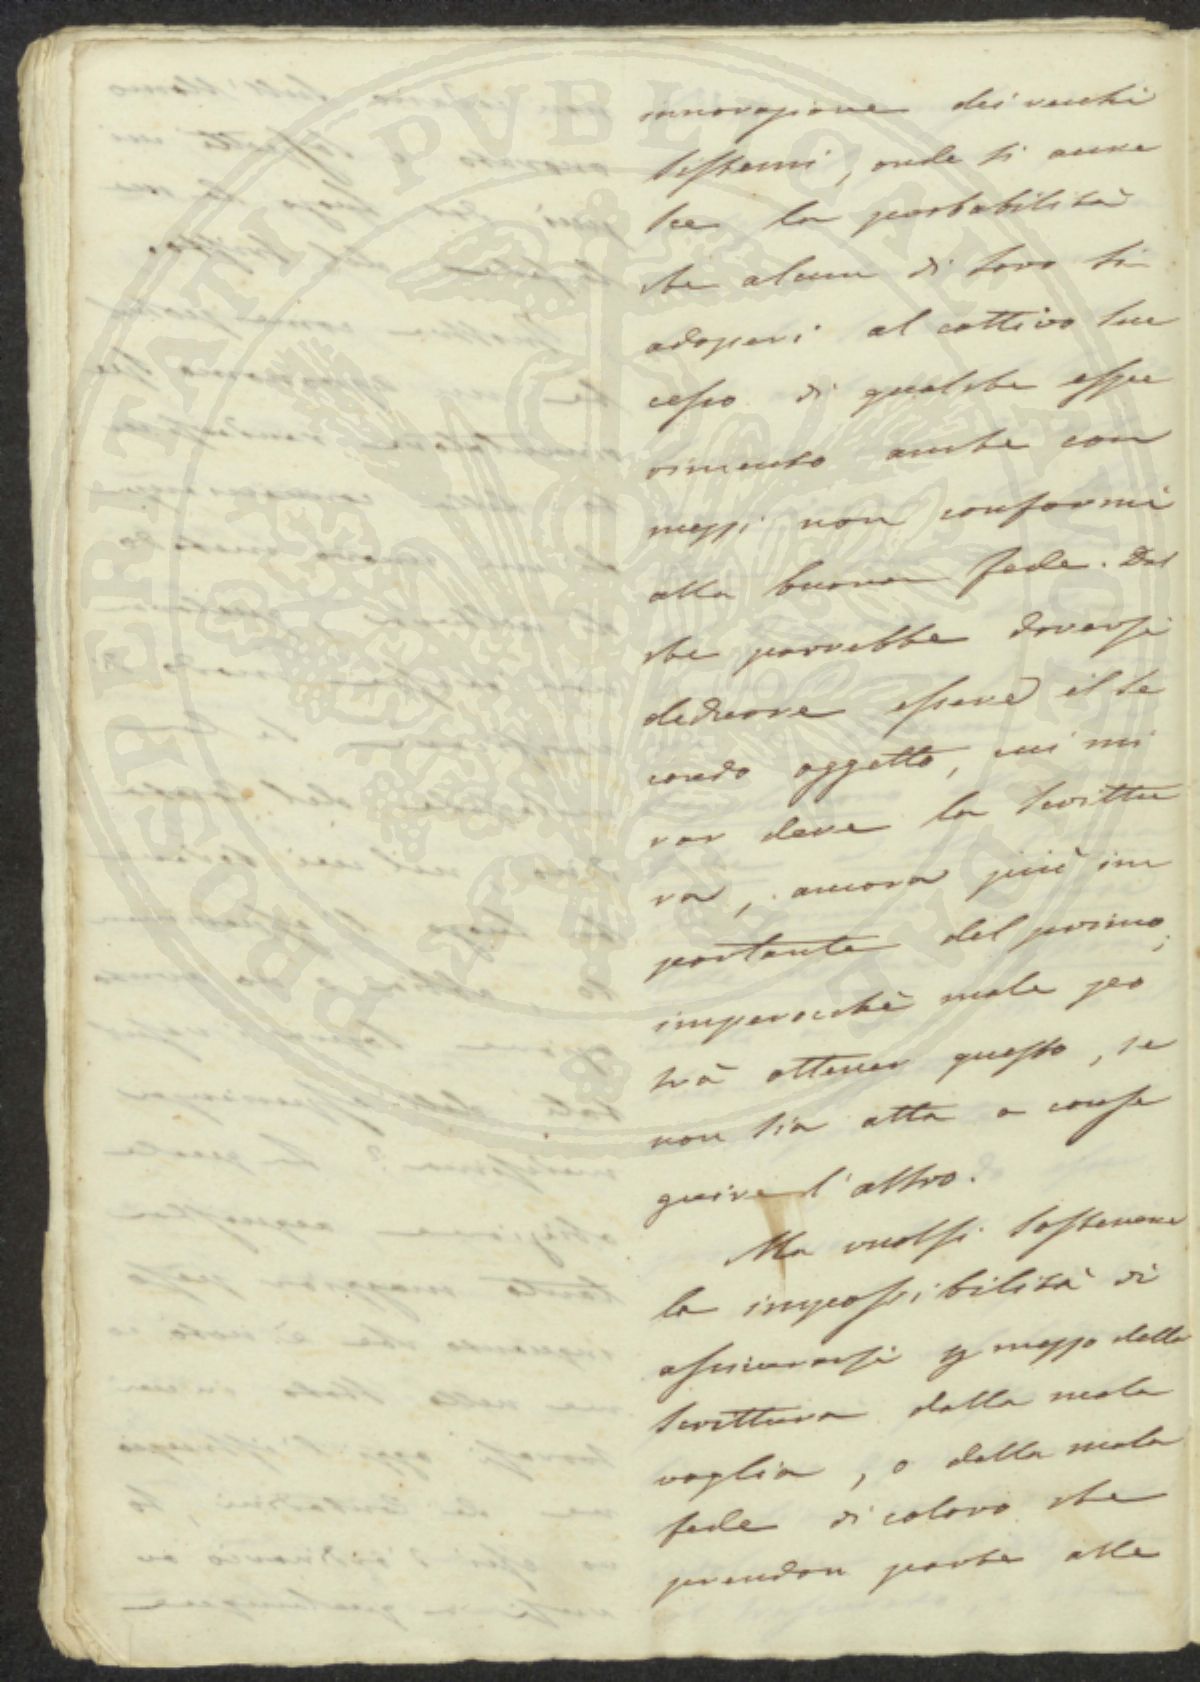 innovazione dei vecchi
sistemi, onde si accre
sce la probabilità
che alcun di loro si
adoperi al cattivo suc
cesso di qualche espe
rimento anche con
mezzi non conformi
alla buona fede. Dal
che parrebbe doversi
dedurre essere il se
condo oggetto, cui mi
rar deve la scrittu
ra, ancora più im
portante del primo;
imperocchè male po
trà ottener questo, se
non sia atta a conse
guire l'altro.
Ma vuolsi sostenere
la impossibilità di
assicurarsi p mezzo della
scrittura dalla mala
voglia, o dalla mala
fede di coloro che
prendon parte alle
PROSPERITATI PVBLICAE AVGENDAE